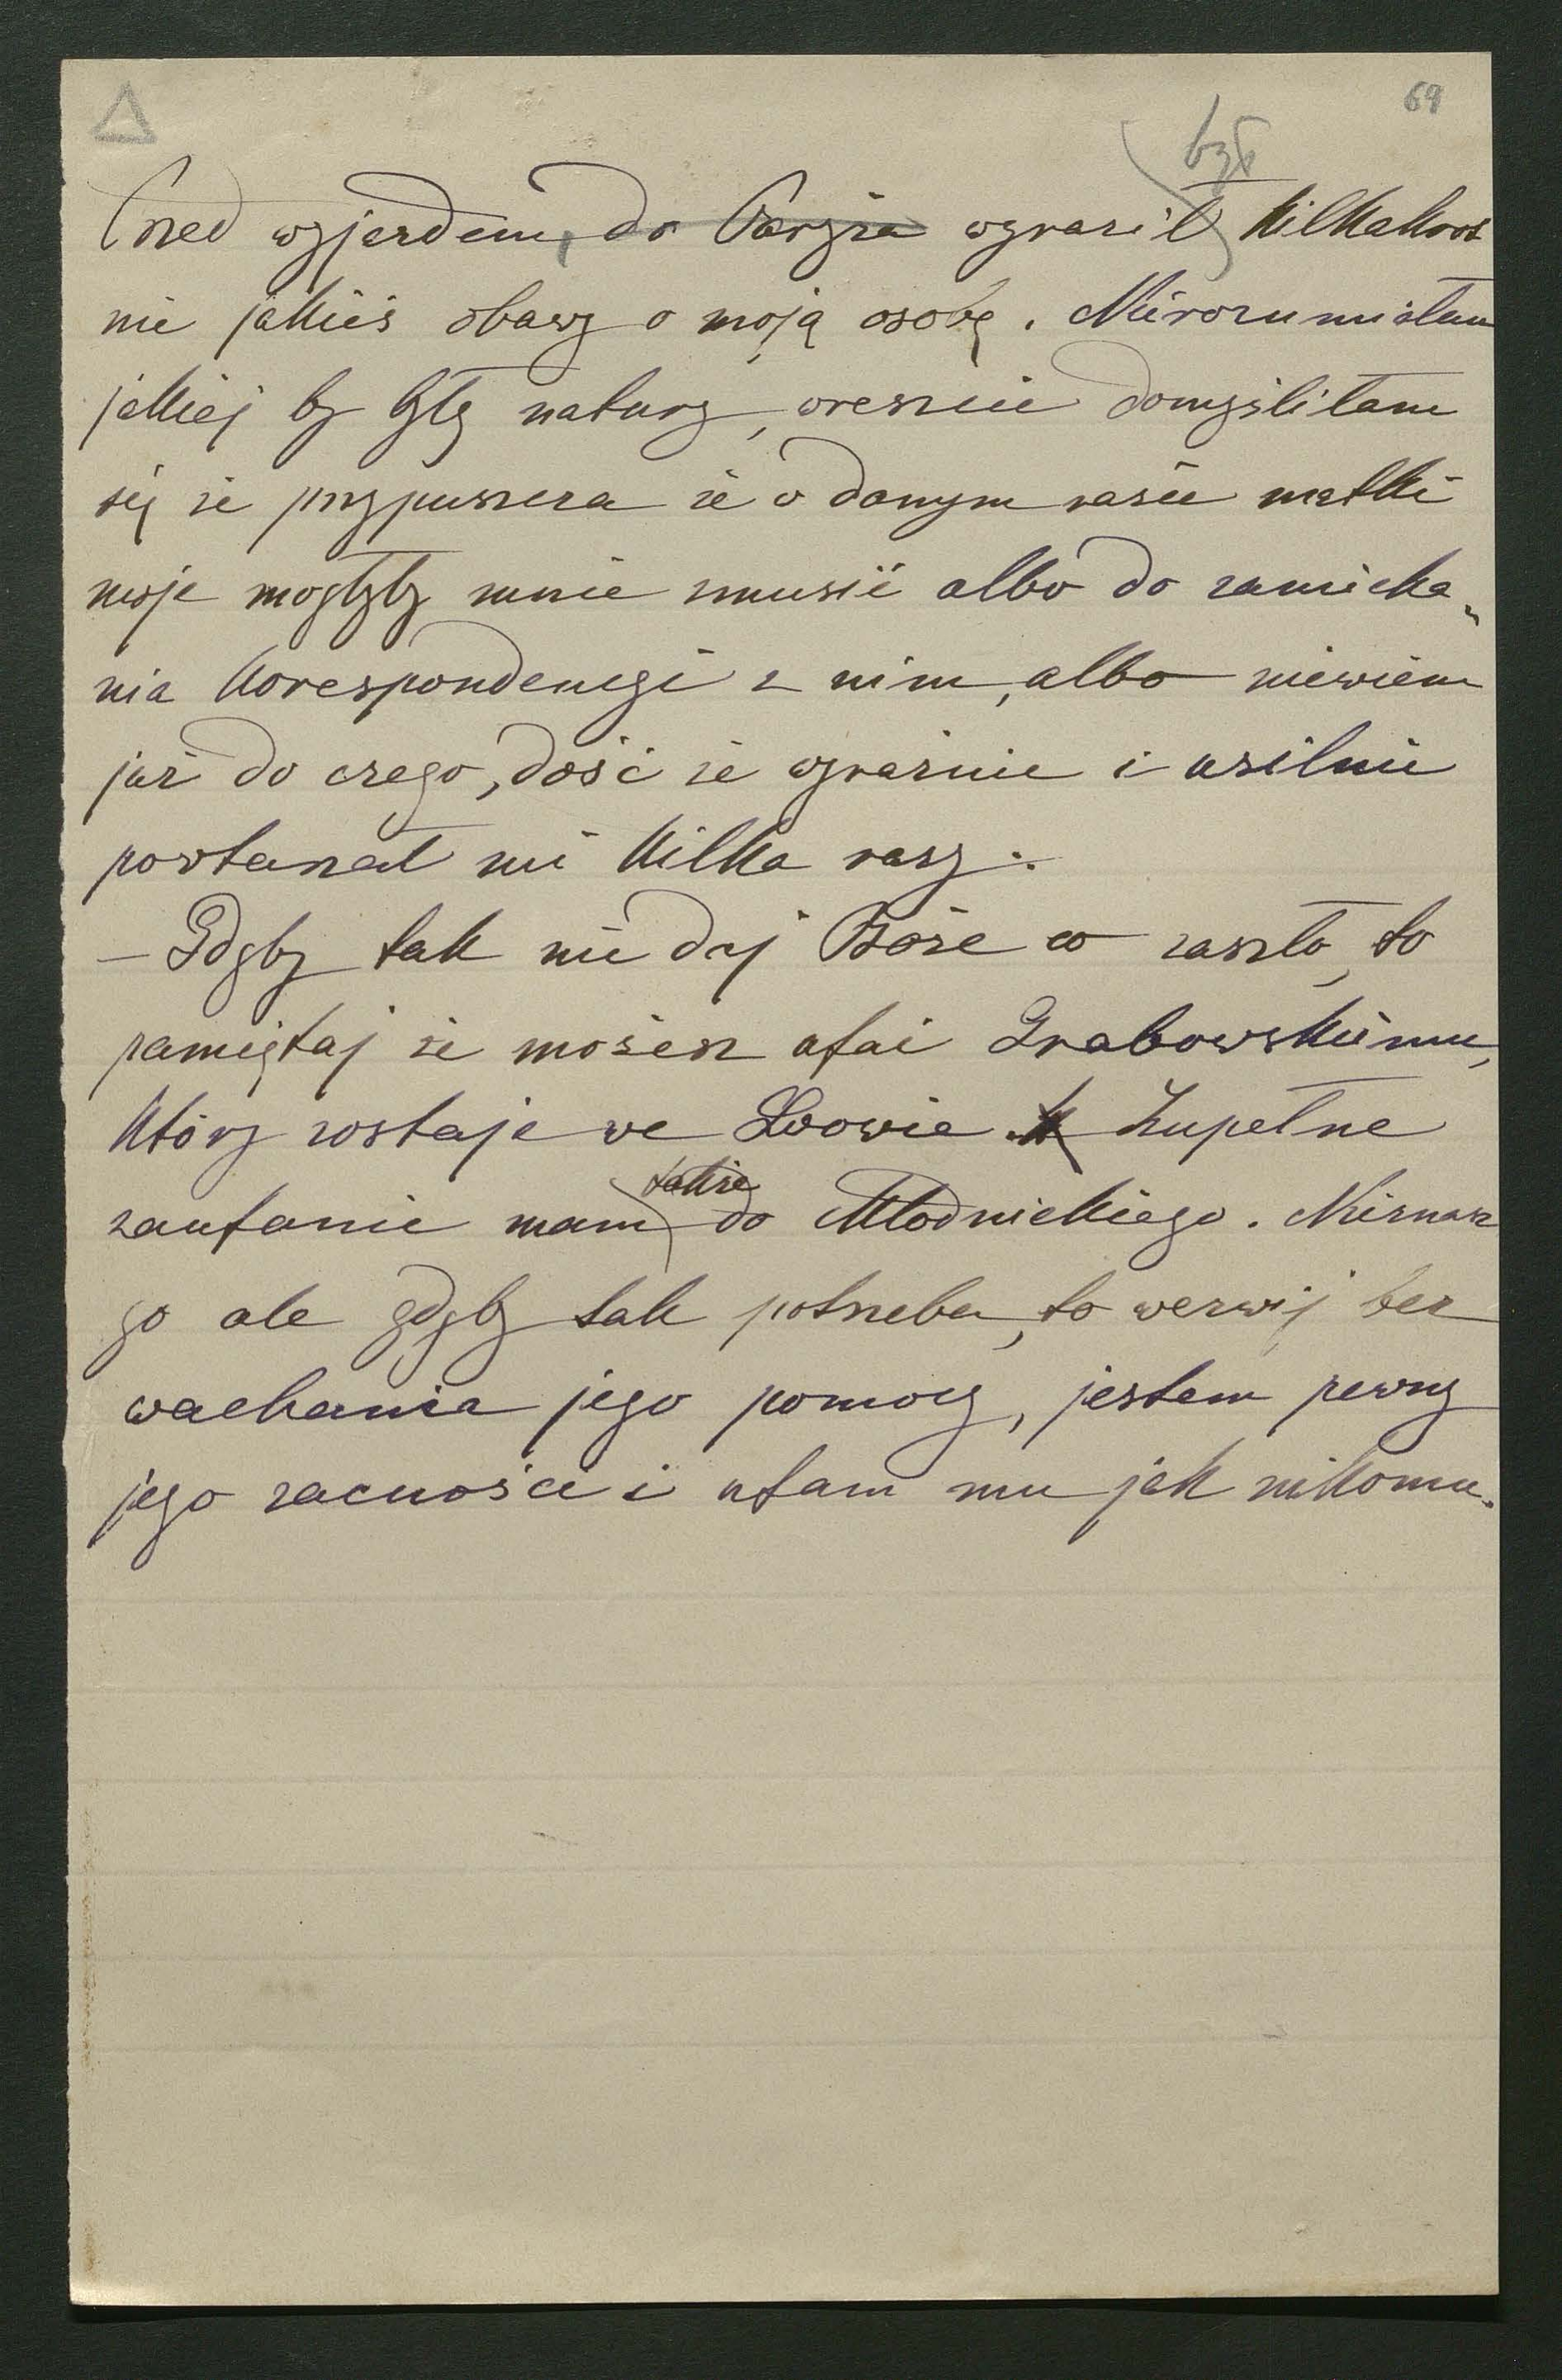 69
był
Przed wyjazdem, do Paryża wyraził kilkakrot
nie jakieś obawy o moją osobę. Nierozumiałam
jakiej by były natury, wreszcie domyśliłam
się że przypuszcza że w danym razie matki
moje mogłyby mnie zmusić albo do zaniecha„
nia korespondencyi z nim, albo niewiem
już do czego, dość że wyraźnie i usilnie
powtarzał mi kilka razy:
— Gdyby tak nie daj Boże co zaszło, to
pamiętaj że możesz ufać Grabowskiemu,
który zostaje we Lwowie Zupełne
także
zaufanie mam do Młodnickiego. Nieznasz
go ale gdyby tak potrzeba, to wezwij bez
wachania jego pomocy, jestem pewny
jego zacności i ufam mu jak nikomu.